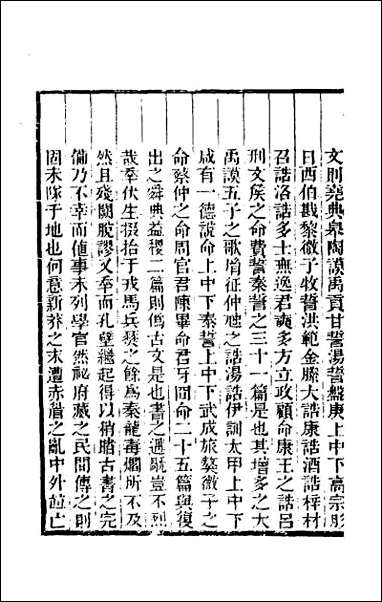 文則堯典皋陶謨禹貢甘誓湯誓盤庚上中下高宗肜
日西伯戡黎微子牧誓洪範金縢大誥康誥酒誥梓材
召誥洛誥多士無逸君奭多方立政顧命康王之誥呂
刑文侯之命費誓秦誓之三十一篇是也其增多之大
禹謨五子之歌㣧征仲虺之誥湯誥伊訓太甲上中下
咸有一德說命上中下泰誓上中下武成旅獒微子之
命蔡仲之命周官君陳畢命君牙冏命二十五篇與復
出之舜典益稷二篇則僞古文是也書之遘厄豈不烈
哉幸伏生掇拾于戎馬兵燹之餘爲秦龍毒爓所不及
然且殘闕脫謬又幸而孔壁繼起得以稍腊古書之完
備乃不幸而値事未列學官然祕府藏之民間傳之則
固未隊于地也何意新莽之末遭赤眉之亂中外竝亡